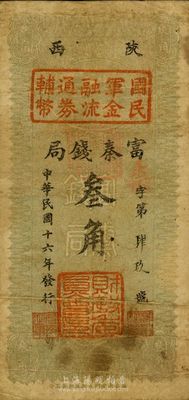 陝西
國民軍金融流通券輔幣
富秦錢局
字第肆玖號
叁角
中華民國十六年發行